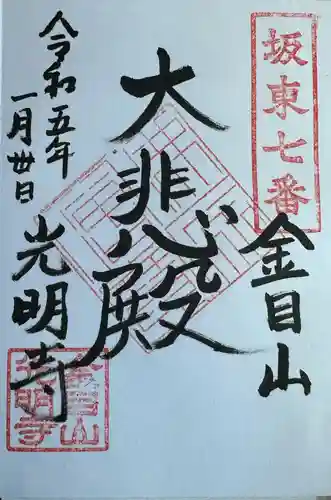 坂東七番
金目山
大悲殿
光明寺
令和五年
一月廿日
金目山
光明寺